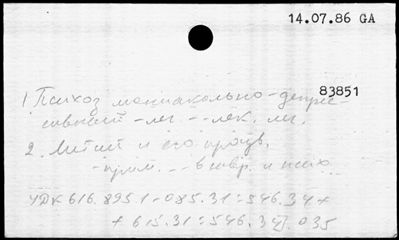 14.07.86 GA
83851
1 Психоз маниакально-депрес-
сивный - леч. -- лек. ли.
2. Литий и его произв.
- прим. -- в невр. и псих
УДК 616.895.1-085.31:546.34 +
+ 615.31:546.34].035